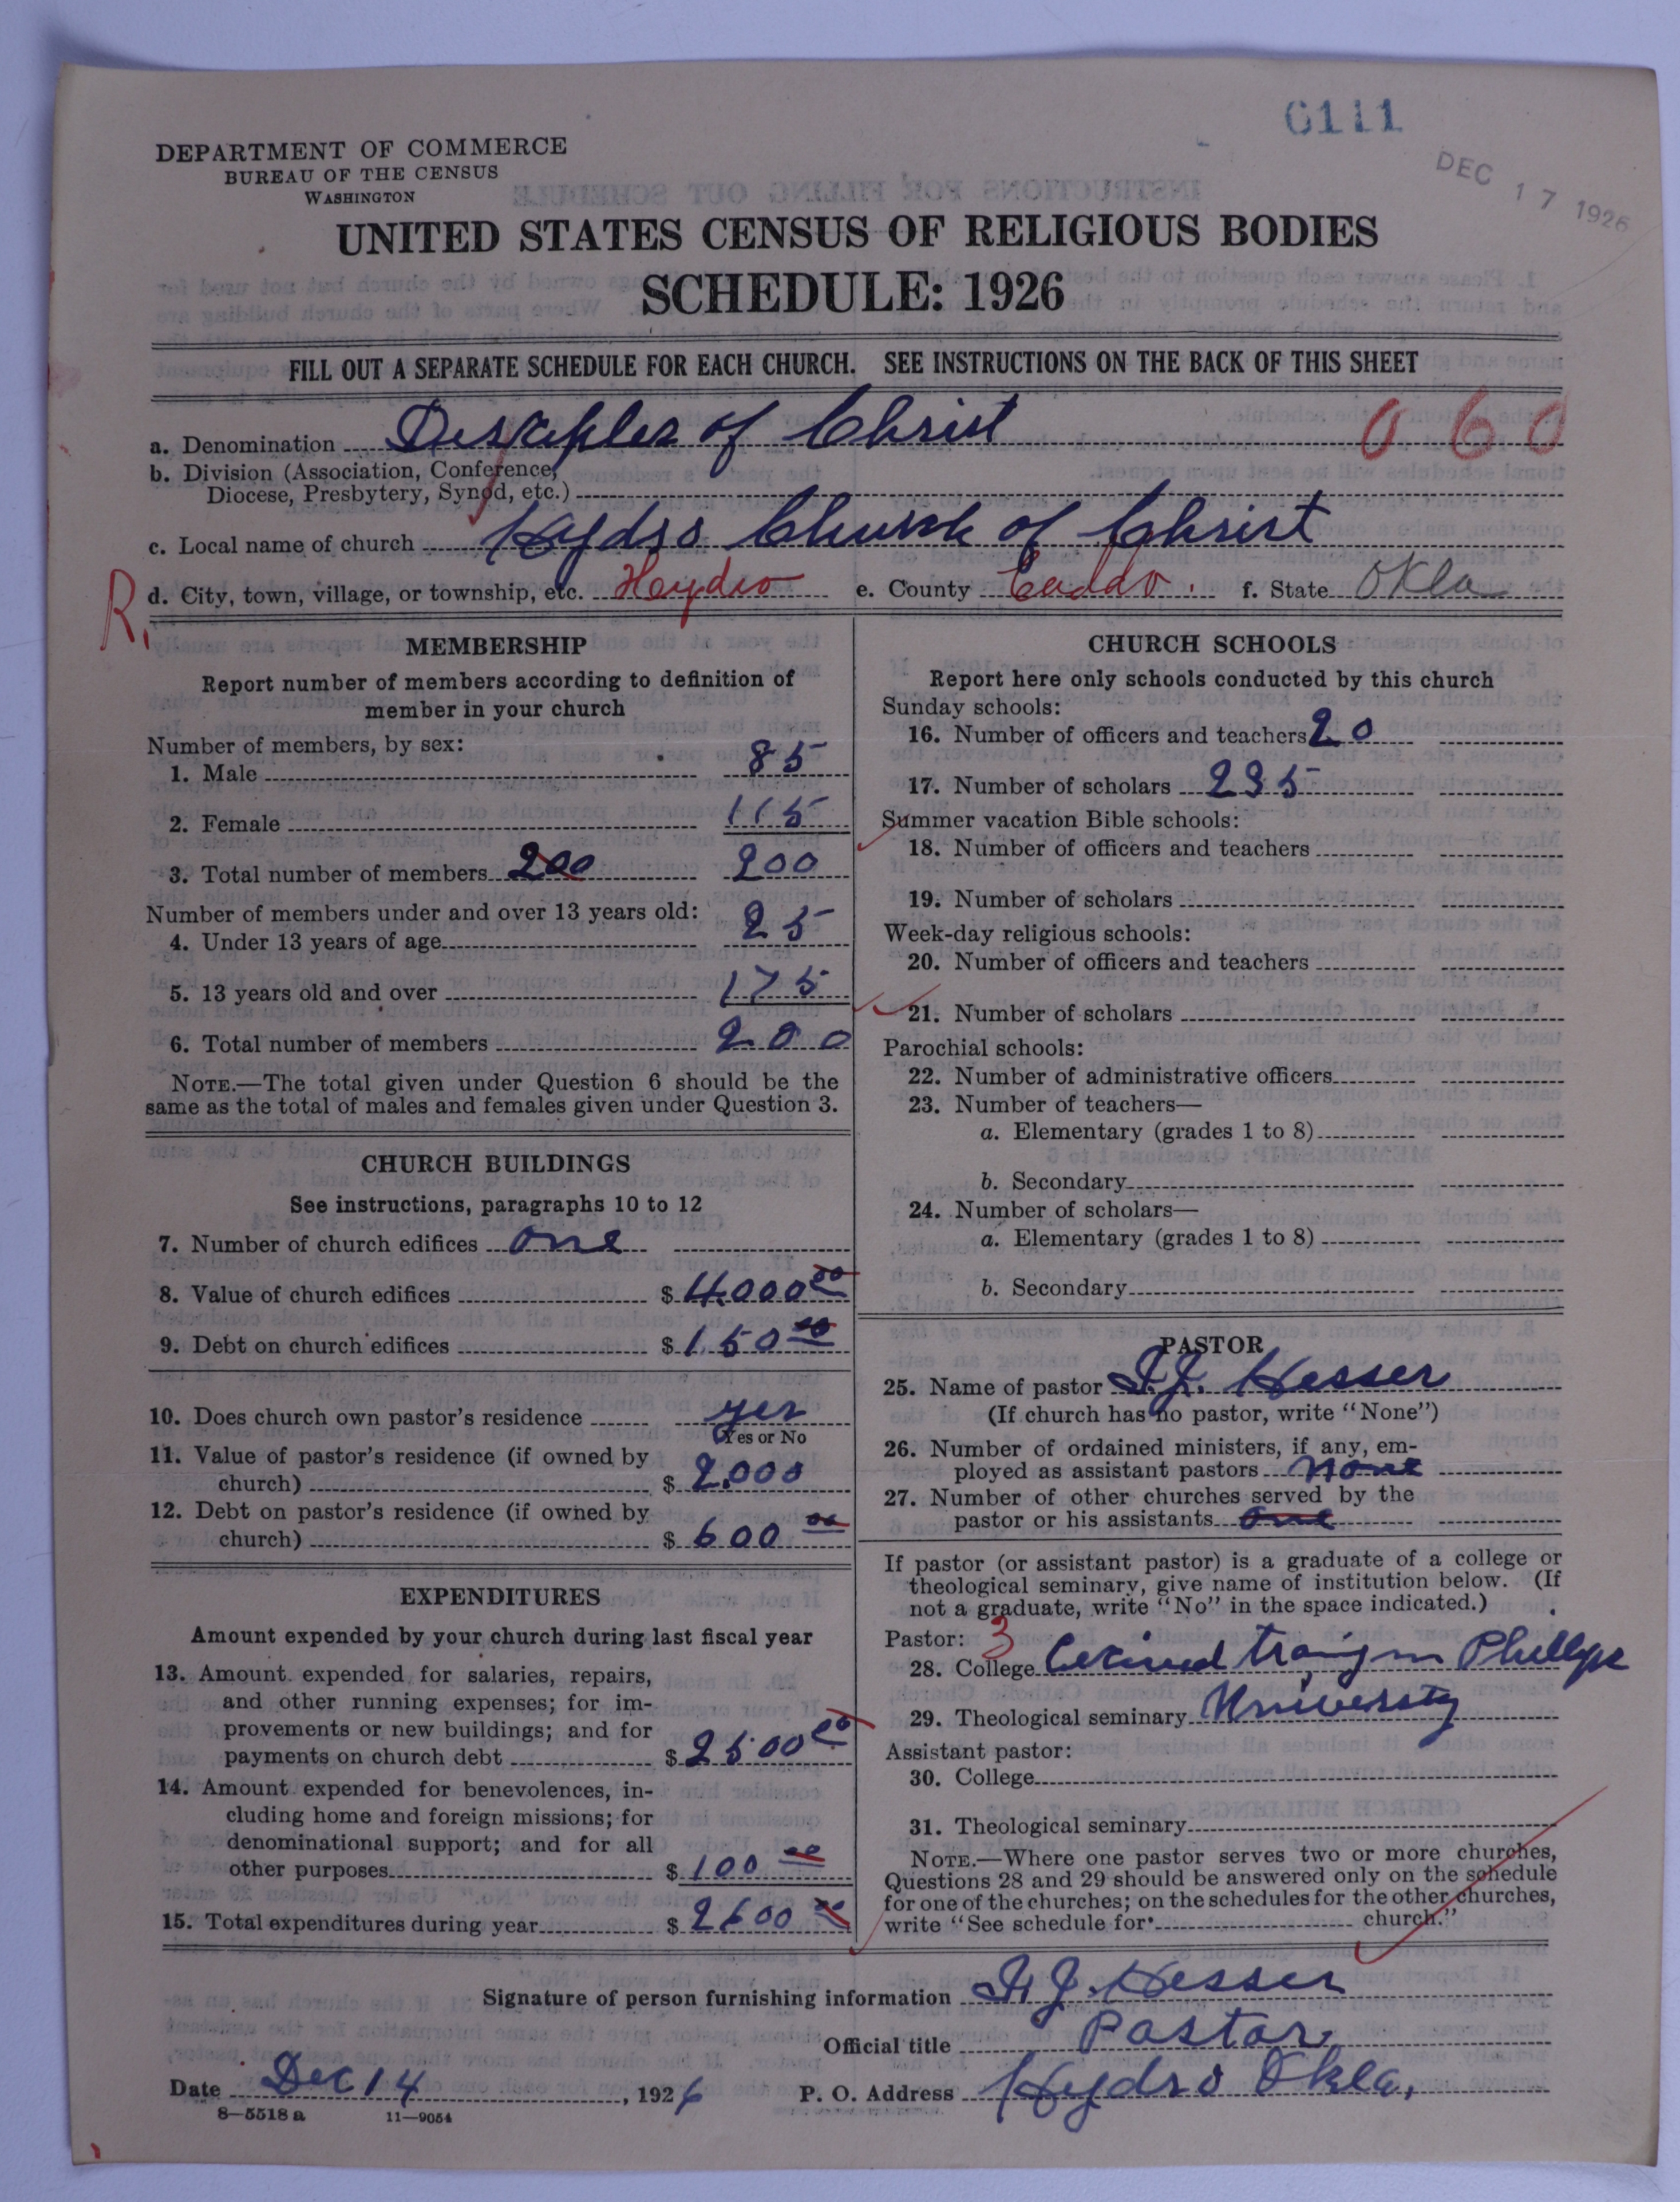 6111
DEC 17 1926
DEPARTMENT OF COMMERCE
BUREAU OF THE CENSUS
WASHINGTON
UNITED STATES CENSUS OF RELIGIOUS BODIES
SCHEDULE: 1926
FILL OUT A SEPARATE SCHEDULE FOR EACH CHURCH. SEE INSTRUCTIONS ON THE BACK OF THIS SHEET
a. Denomination Desciples of Christ 060
b. Division (Association, Conference,
Diocese, Presbytery, Synod, etc.)
c. Local name of church Hydro Church of Christ
R. d. City, town, village, or township, etc. Hydro e. County Caddo. f. State Okla
MEMBERSHIP
Report number of members according to definition of
member in your church
Number of members, by sex:
1. Male 85
2. Female 115
3. Total number of members 200 200
Number of members under and over 13 years old:
4. Under 13 years of age 25
5. 13 years old and over 175
6. Total number of members 200
NOTE.—The total given under Question 6 should be the
same as the total of males and females given under Question 3.
CHURCH BUILDINGS
See instructions, paragraphs 10 to 12
7. Number of church edifices one
8. Value of church edifices $ 4,000 00
9. Debt on church edifices $ 150 00
10. Does church own pastor's residence yes
Yes or No
11. Value of pastor's residence (if owned by
church) $ 2,000
12. Debt on pastor's residence (if owned by
church) $ 600 00
EXPENDITURES
Amount expended by your church during last fiscal year
13. Amount expended for salaries, repairs,
and other running expenses; for im-
provements or new buildings; and for
payments on church debt $ 2500 00
14. Amount expended for benevolences, in-
cluding home and foreign missions; for
denominational support; and for all
other purposes $ 100 00
15. Total expenditures during year $ 2600 00
CHURCH SCHOOLS
Report here only schools conducted by this church
Sunday schools:
16. Number of officers and teachers 20
17. Number of scholars 235
Summer vacation Bible schools:
18. Number of officers and teachers
19. Number of scholars
Week-day religious schools:
20. Number of officers and teachers
21. Number of scholars
Parochial schools:
22. Number of administrative officers
23. Number of teachers—
a. Elementary (grades 1 to 8)
b. Secondary
24. Number of scholars—
a. Elementary (grades 1 to 8)
b. Secondary
PASTOR
25. Name of pastor J. Hesser
(If church has no pastor, write "None")
26. Number of ordained ministers, if any, em-
ployed as assistant pastors None
27. Number of other churches served by the
pastor or his assistants one
If pastor (or assistant pastor) is a graduate of a college or
theological seminary, give name of institution below. (If
not a graduate, write "No" in the space indicated.)
Pastor: 3
28. College Phillips
29. Theological seminary University
Assistant pastor:
30. College
31. Theological seminary
NOTE.—Where one pastor serves two or more churches,
Questions 28 and 29 should be answered only on the schedule
for one of the churches; on the schedules for the other churches,
write "See schedule for church."
Signature of person furnishing information J. Hesser
Official title Pastor
Date Dec 14, 1926 P. O. Address Hydro Okla,
8—5518 a 11—9054